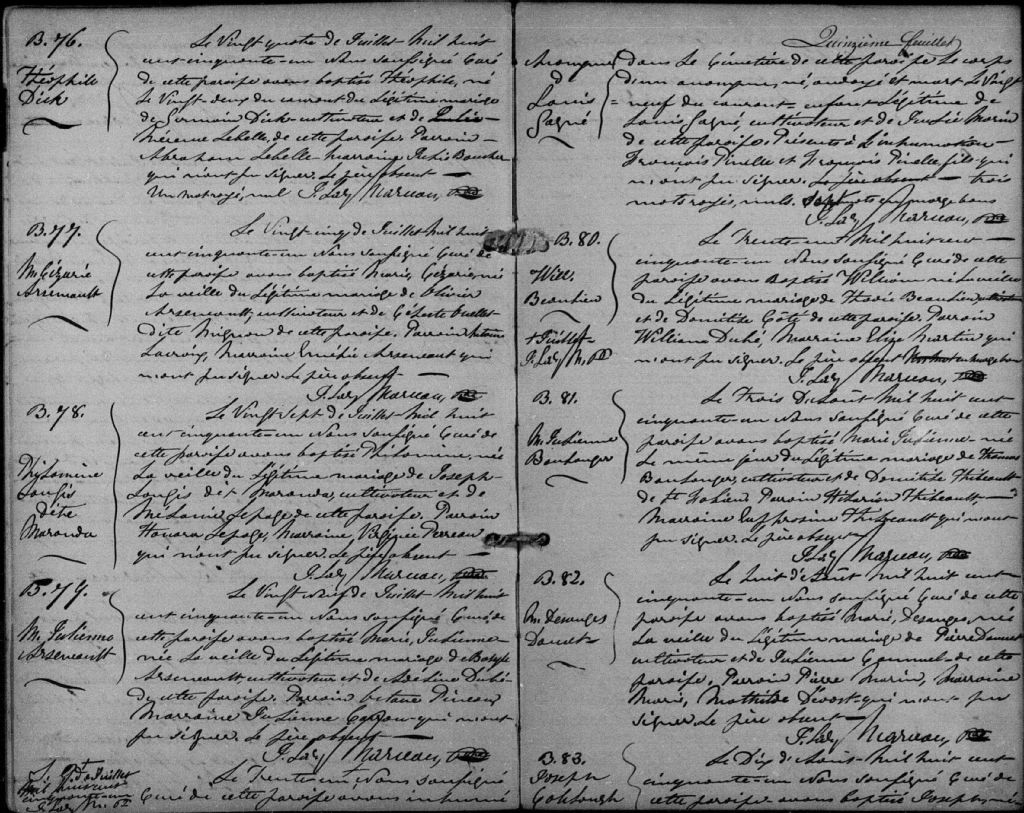 B. 76.
Théophile
Dick
Le Vingt quatre de Juillet Mil huit
cent cinquante-un Nous soussigné Curé
de cette paroisse avons baptisé Théophile, né
Le Vingt-deux du courant du Légitime mariage
de Germain Dick cultivateur et de
Lebelle, de cette paroisse. Parrain
Abraham Lebelle marraine Boucher
qui n'ont pu signer. Le père absent
Un mot rayé, nul J. Laz Marceau, Ptre
B. 77.
M. Cézarie
Arsenault
Le Vingt cinq de Juillet Mil huit
cent cinquante-un Nous soussigné Curé de
cette paroisse avons baptisé Marie, Cézarie, née
La veille du Légitime mariage de Olivier
Arsenault, cultivateur et de Ouellet
dite Mignon de cette paroisse. Parrain
Lacroix, Marraine Arsenault qui
n'ont pu signer. Le père absent
J. Laz Marceau, Ptre
B. 78.
Philomine
Langis
dite
Maranda
Le Vingt Sept de Juillet Mil huit
cent cinquante-un Nous soussigné Curé de
cette paroisse avons baptisé Philomine, née
La veille du Légitime mariage de Joseph
Langis dit Maranda, cultivateur et de
Mélanie Lepage de cette paroisse. Parrain
Honoré Lepage, Marraine, Virginie
qui n'ont pu signer. Le père absent
J. Laz Marceau, Ptre
B. 79.
M. Julienne
Arseneault
Le Vingt Neuf de Juillet Mil huit
cent cinquante-un Nous soussigné Curé de
cette paroisse avons baptisé Marie, Julienne
née La veille du Légitime mariage de
Arseneault cultivateur et de Dubé
de cette paroisse. Parrain Pineau
Marraine Julienne qui n'ont
pu signer. Le père absent
J. Laz Marceau, Ptre
S. 9 Juillet
Mil huit cent
cinquante-un
J. Laz M. Ptre
Le Trente un Nous soussigné
Curé de cette paroisse avons inhumé
Quinzième feuillet
Anonyme
d
Louis
Gagné
dans Le Cimetière de cette paroisse Le corps
d'un anonyme né, ondoyé et mort Le Vingt
neuf du courant enfant Légitime de
Louis Gagné, cultivateur et de Julie Morin
de cette paroisse. Présents à L'inhumation
François Pinelle et François Pinelle fils qui
n'ont pu signer. Le père absent trois
mots rayés, nuls. en marge bons
J. Laz Marceau, Ptre
B. 80.
Will.
Beaulieu
+ Juillet
J. Laz M. Ptre
Le Trente-un + Mil huit cent
cinquante-un Nous soussigné Curé de cette
paroisse avons Baptisé William né La veille
du Légitime mariage de Beaulieu
et de Domitilde Côté de cette paroisse. Parrain
William Dubé, Marraine Eliza Martin qui
n'ont pu signer. Le père absent en marge bon
J. Laz Marceau, Ptre
B. 81.
M. Julienne
Boulanger
Le Trois D'Août Mil huit cent
cinquante-un Nous soussigné Curé de cette
paroisse avons baptisé Marie Julienne née
Le même jour du Légitime mariage de Thomas
Boulanger, cultivateur et de Domitilde Thibeault
de St Parrain Hilarion Thibeault
Marraine Euphrosine Thibeault qui n'ont
pu signer. Le père absent
J. Laz Marceau, Ptre
B. 82.
M. Desanges
Doucet
Le Huit d'Août Mil huit cent
cinquante-un Nous soussigné Curé de cette
paroisse avons baptisé Marie, Desanges, née
La veille du Légitime mariage de Pierre Doucet
cultivateur et de Julienne de cette
paroisse. Parrain Pierre Morin, Marraine
Marie, Mathilde qui n'ont pu
signer. Le père absent
J. Laz Marceau, Ptre
B. 83.
Joseph
Le Dix d'Août Mil huit cent
cinquante-un Nous soussigné Curé de
cette paroisse avons baptisé Joseph, né